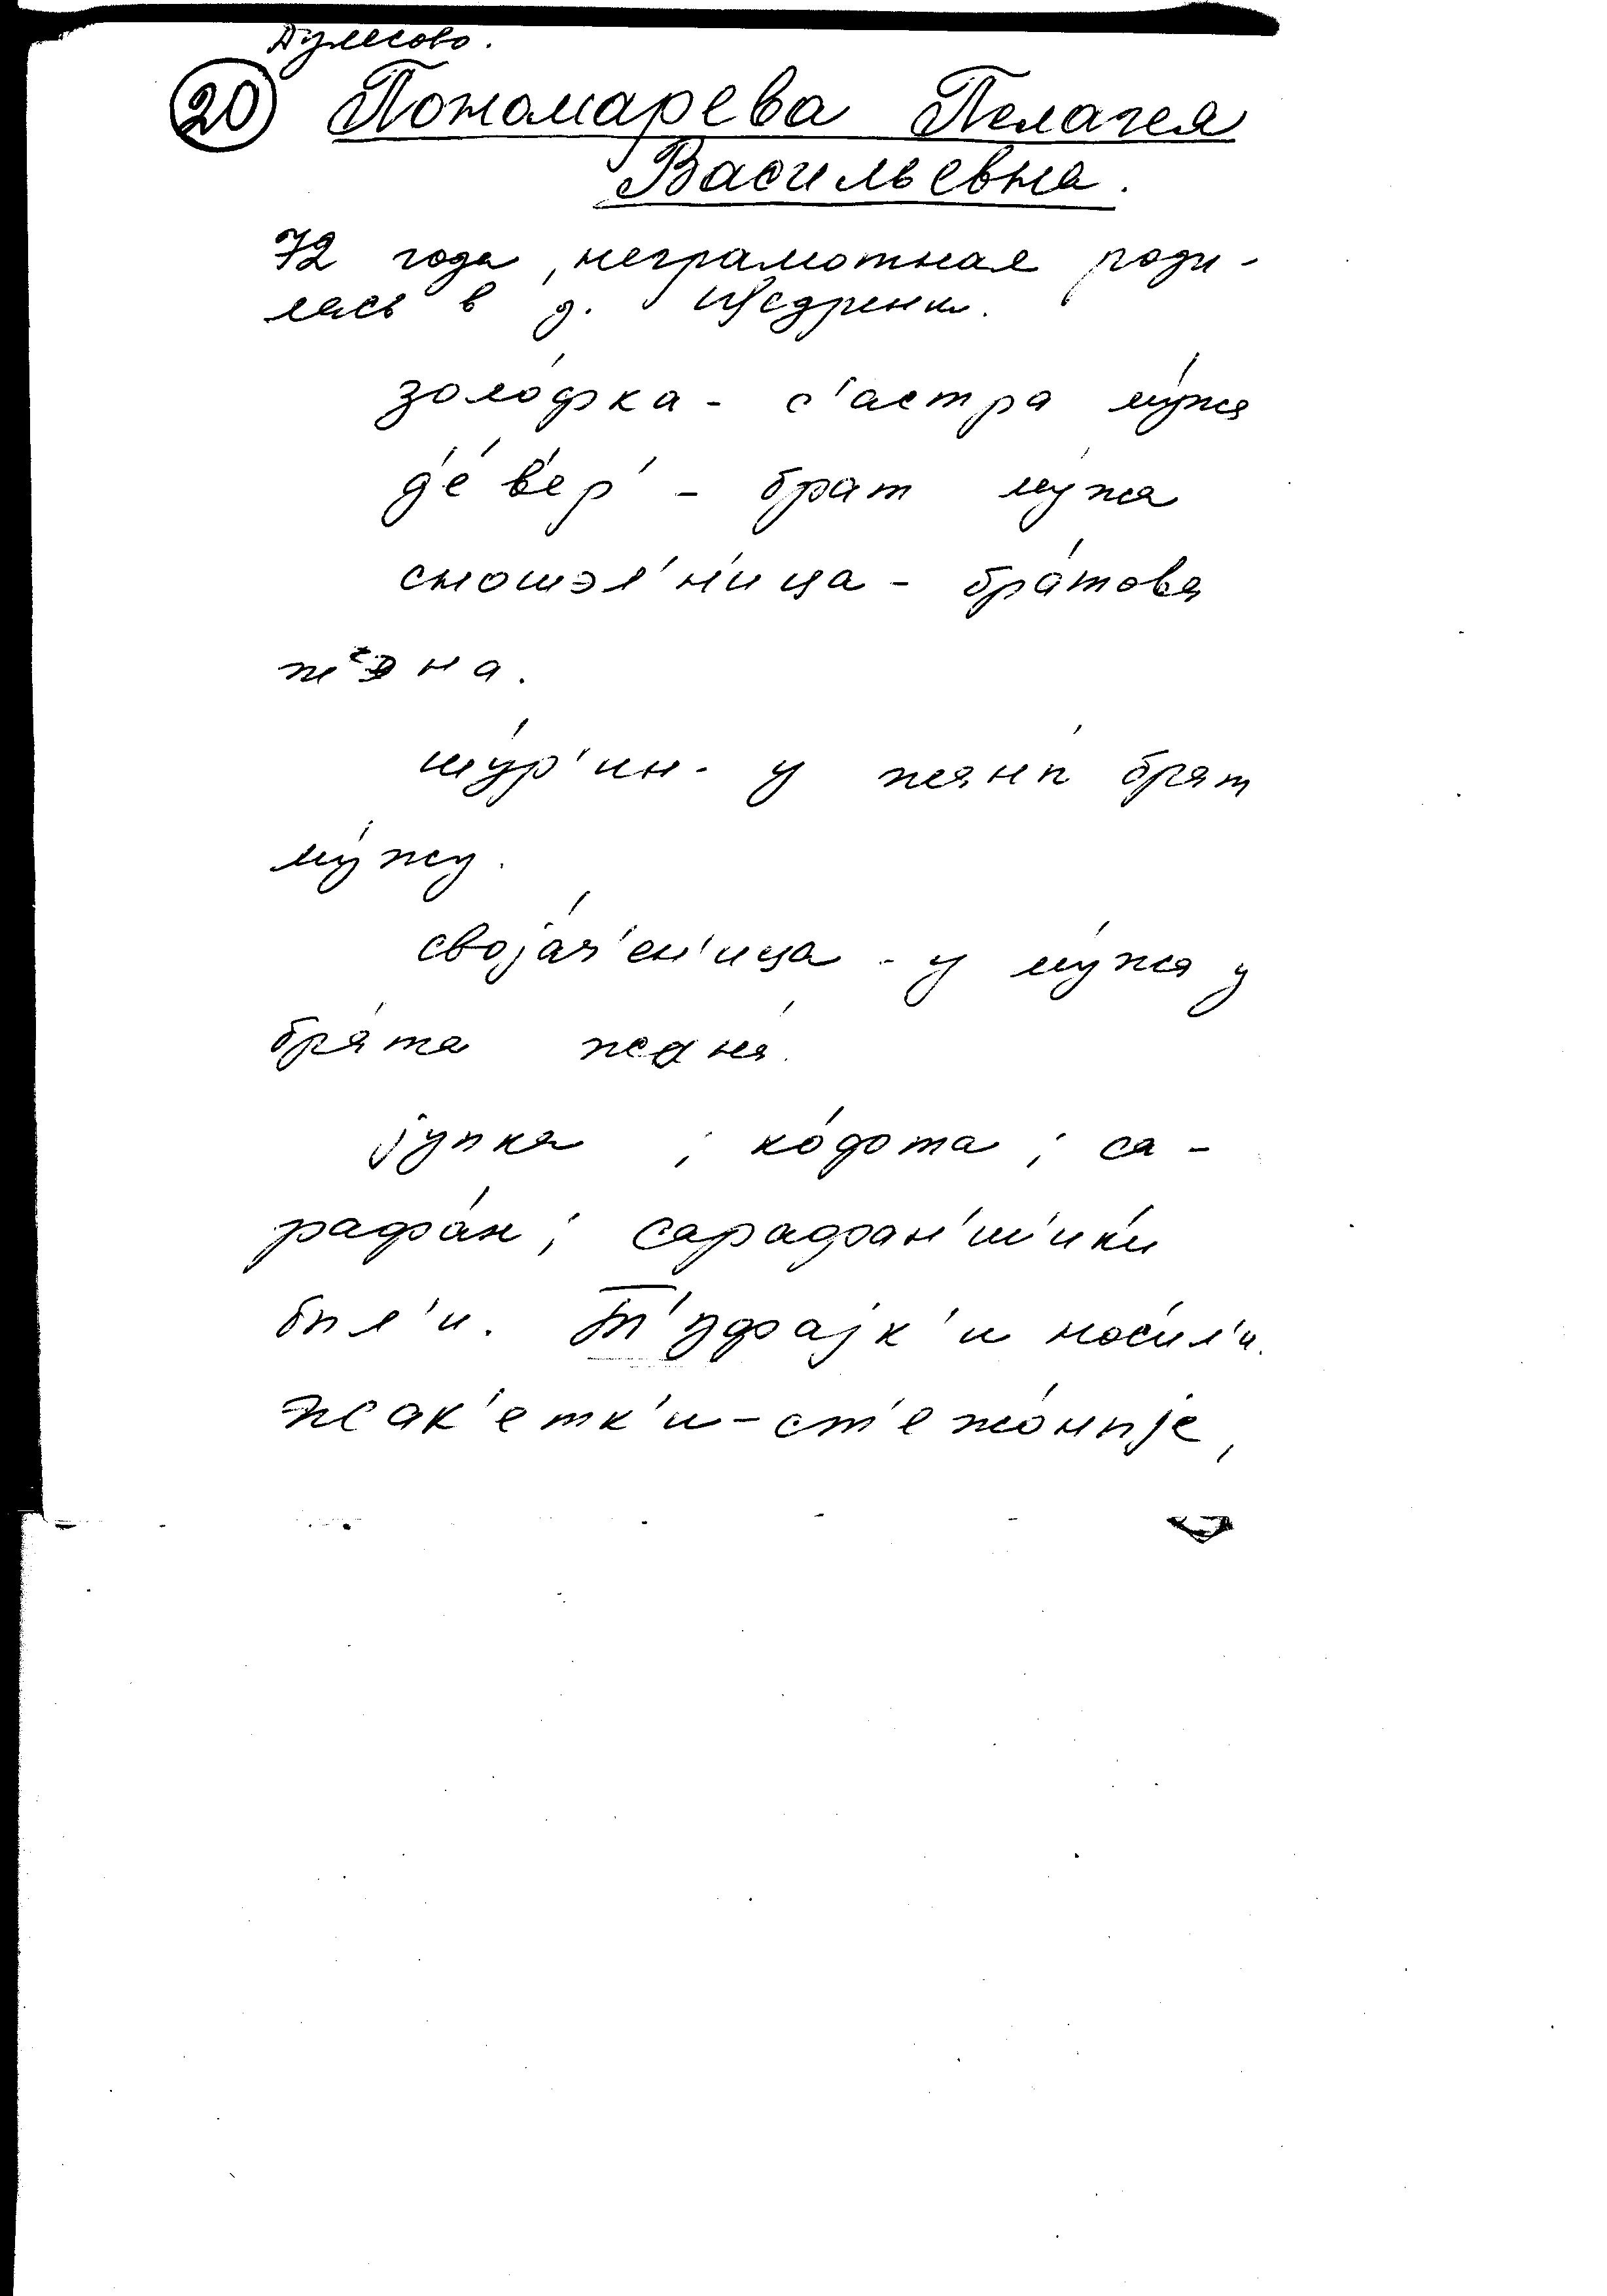 Дулесово.
20 Пономарева Пелагея
Васильевна.
72 года, неграмотная роди-
лась в д. Щедрени.
золо́фка - с'астра му́жа
д'е́в'ер' - брат му́жа
сношэл'н'ица - бра́това
жэна.
шу́р'ин - у жаны́ брат
му́жу.
своjа́ч'ен'ица - у му́жа у
бра́та жана́.
jупка ; ко́фота ; са-
рафа́н ; сарафан'ш'ик'и
были. носи́л'и.
жак'етк'и - ст'ежо́ныjе,